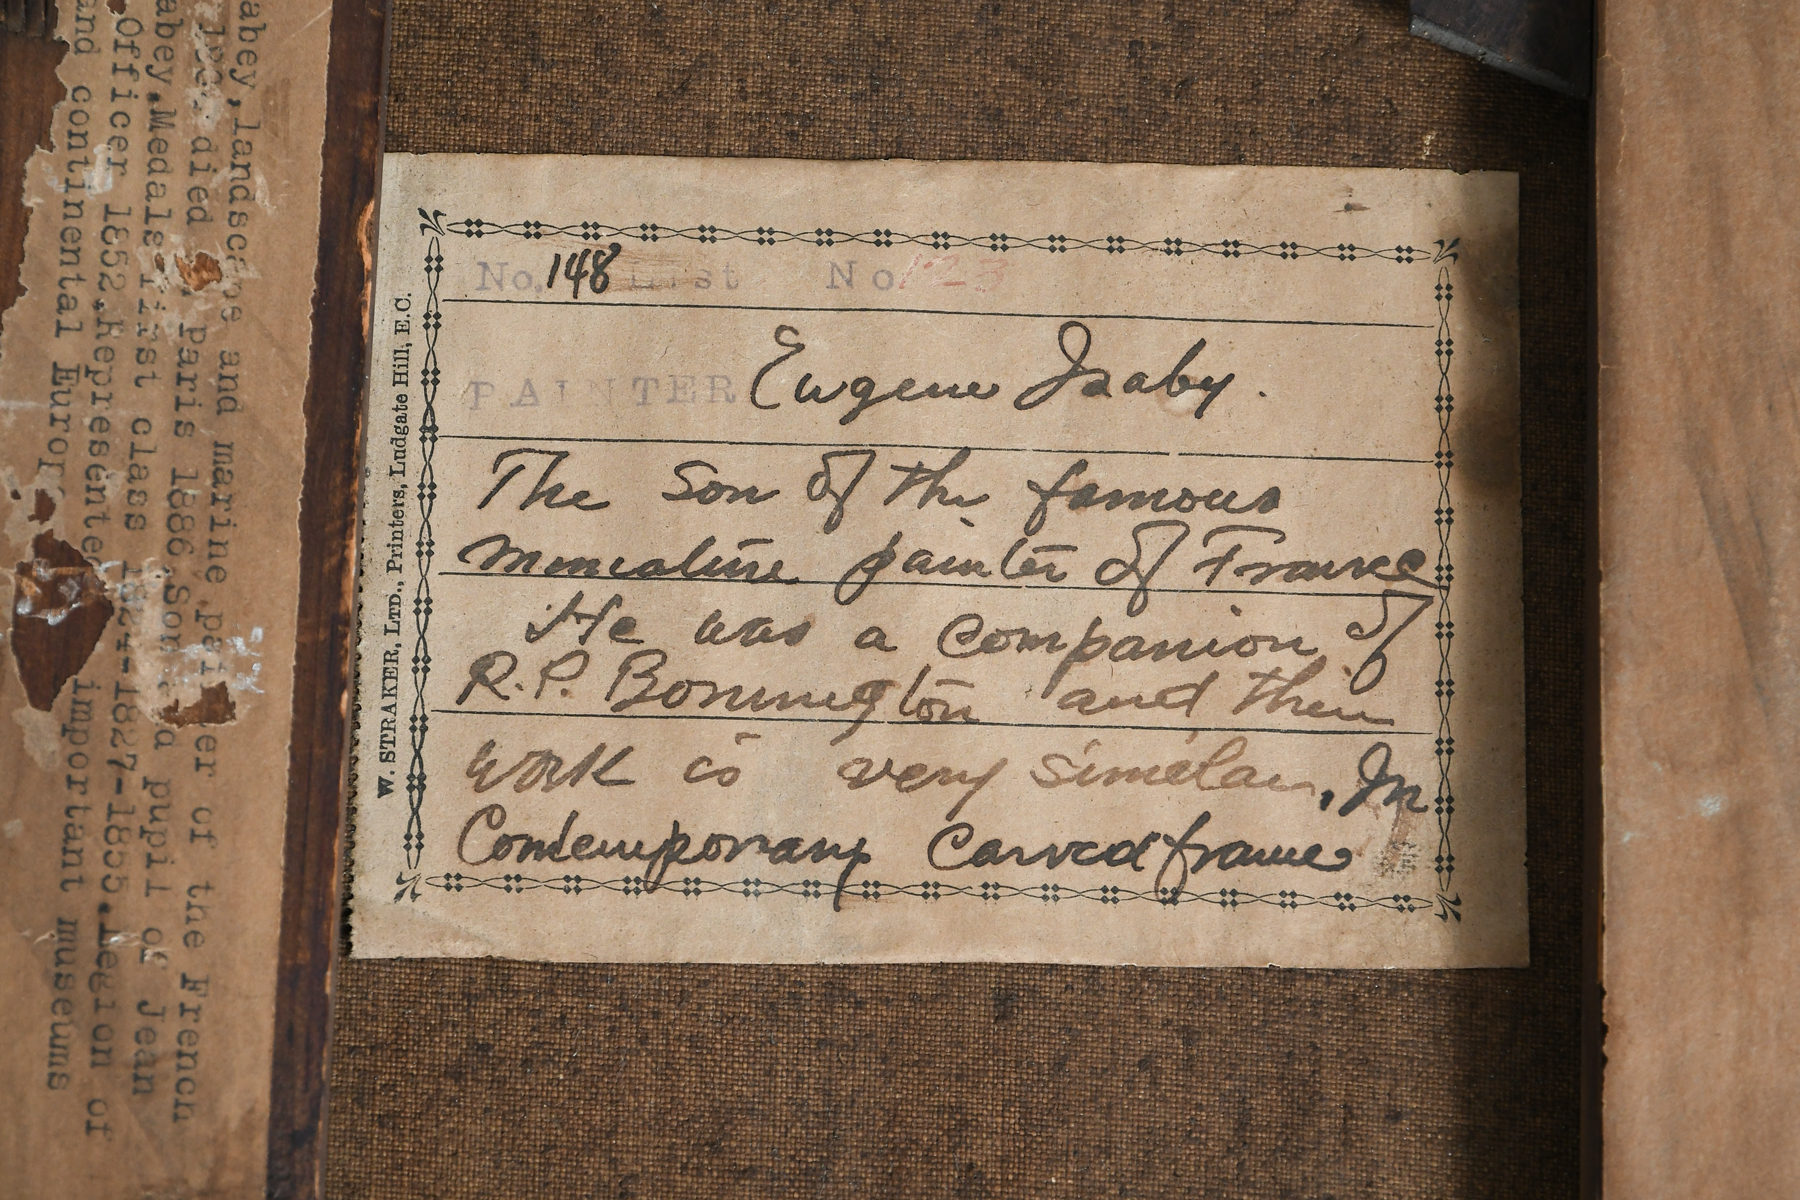 No. 148 List No 123
PAINTER Eugene Isaby.
The Son of the famous
Mineature painter of France
He was a Companion of
R.P. Bonnington and their
work is very similar, In
Contemporary Carved frame
W. STRAKER, LTD., Printers, Ludgate Hill, E.C.
abey, landscape and marine painter of the French
died paris 1886. Son and a pupil of Jean
abey. Medals first class 1824-1827-1855. Legion of
Officer 1852. Represented
and continental Europ important museums